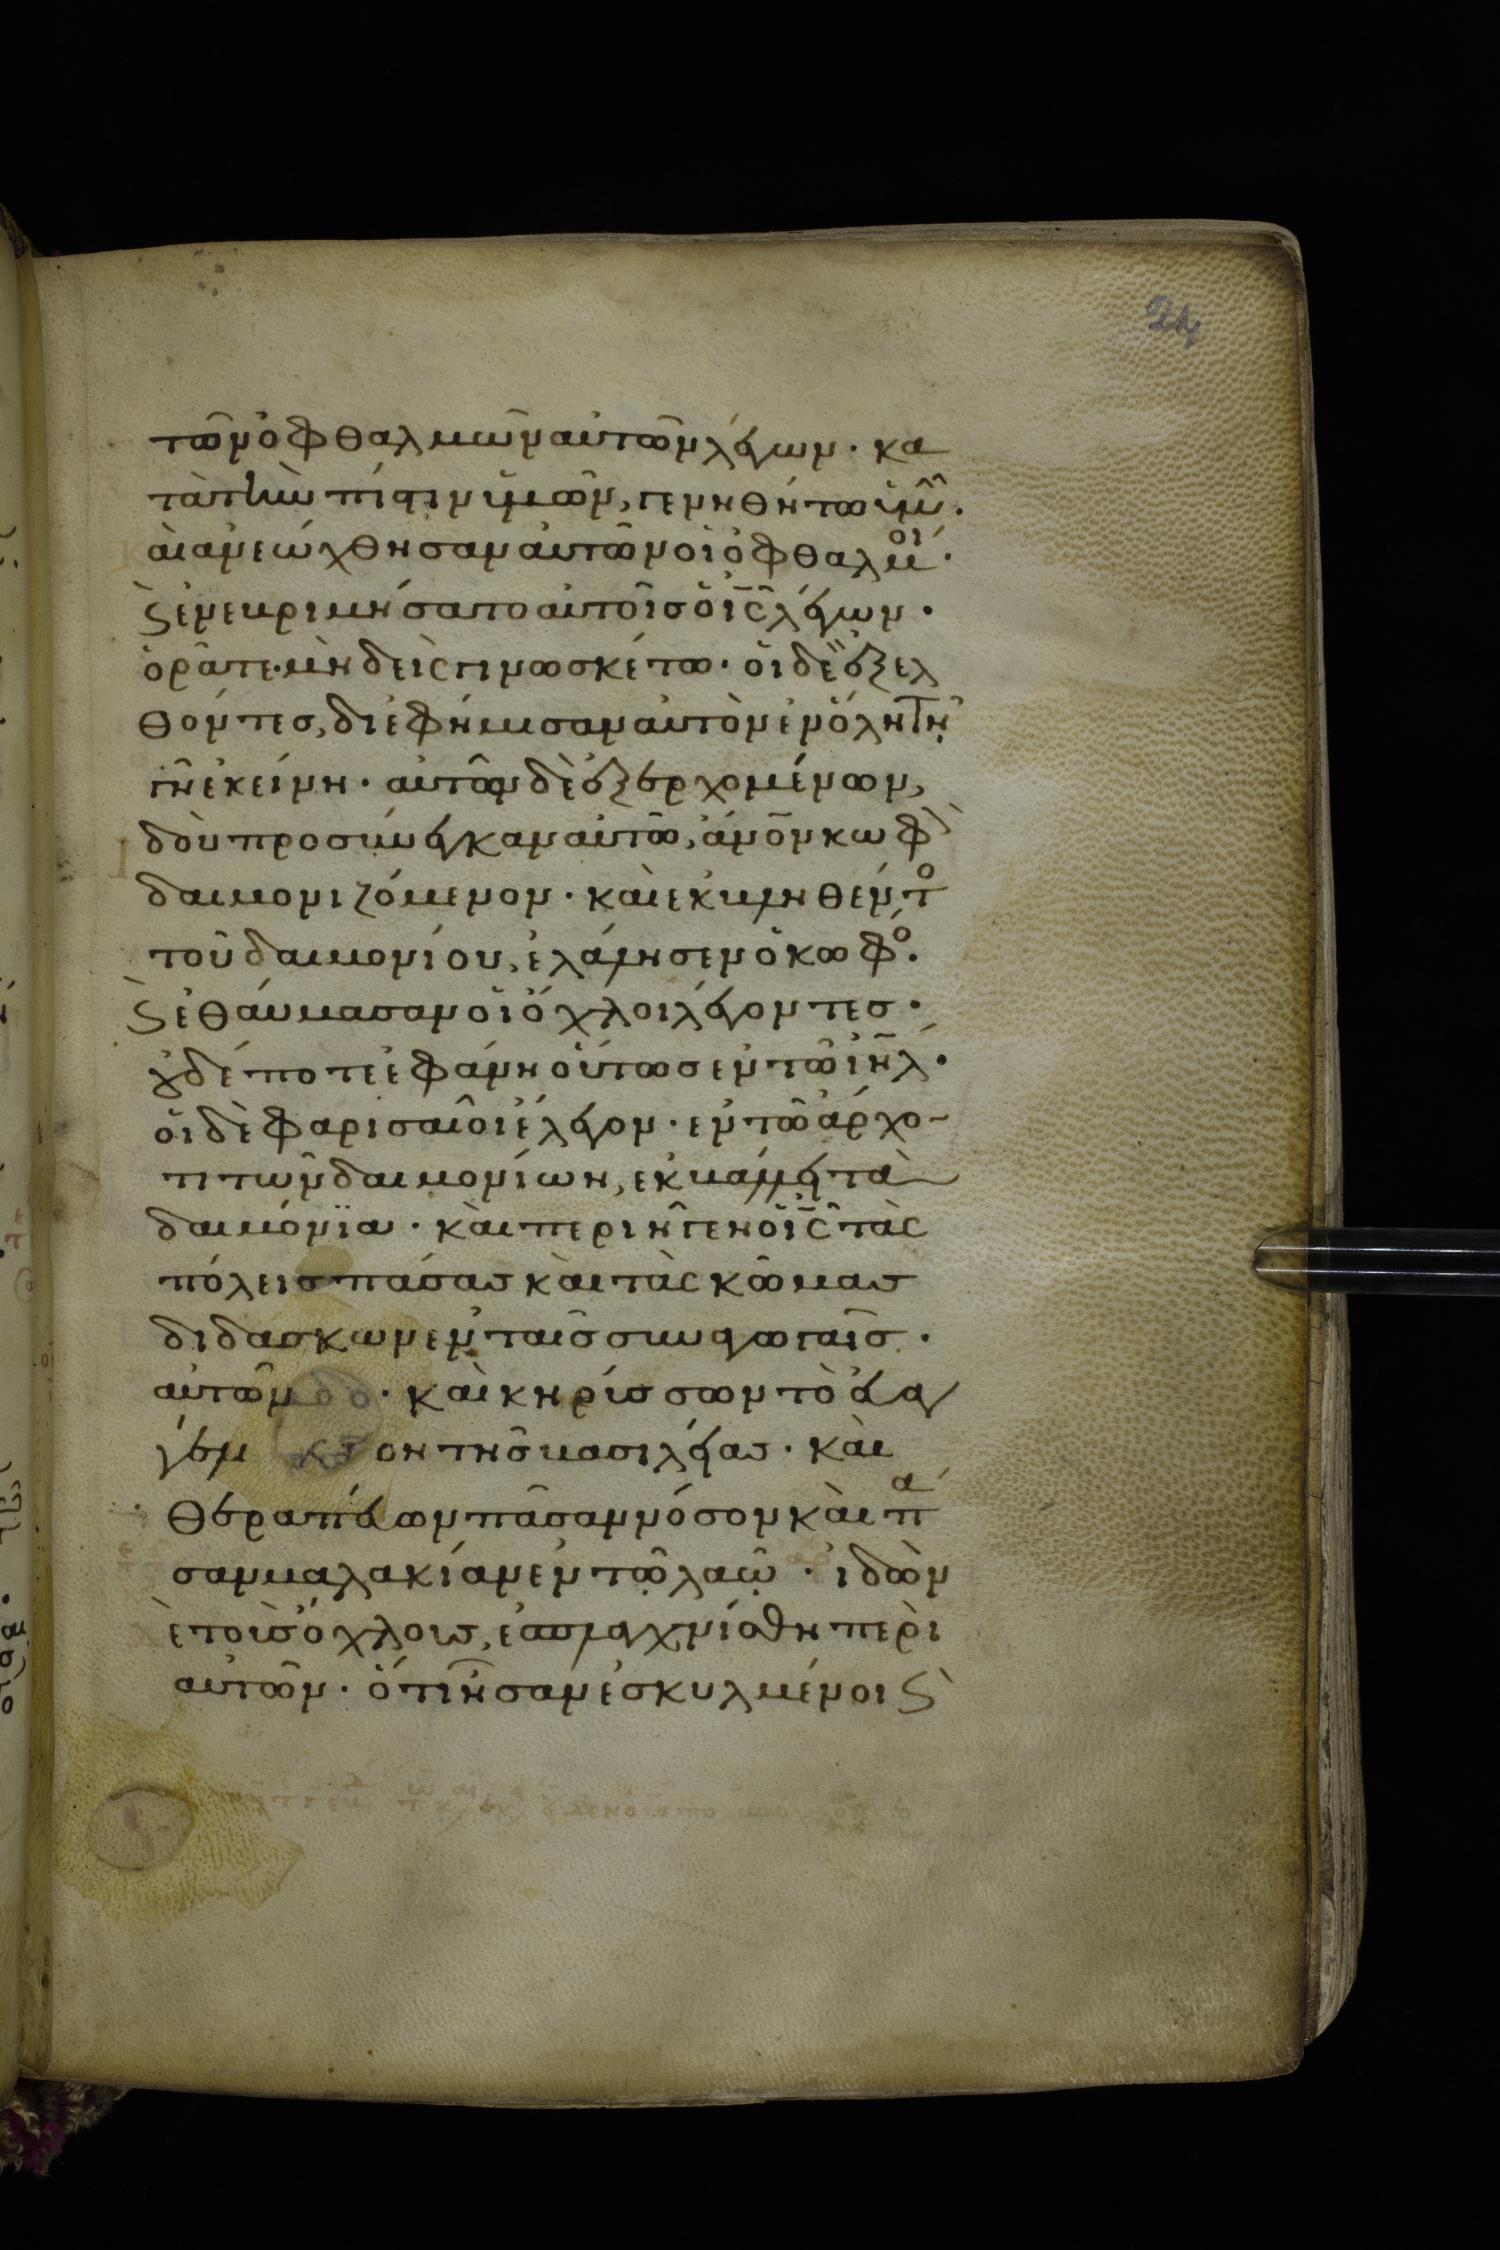 24
τῶν ὀφθαλμῶν αὐτῶν λέγων · κα
τὰ τὴν πίστιν ὑμῶν, γενηθήτω ὑμῖν ·
αὶ ἀνεώχθησαν αὐτῶν οἱ ὀφθαλμοί ·
ϗ ἐνεβριμήσατο αὐτοῖς ὁ ἰ̅ς̅ λέγων ·
ὁρᾶτε · μὴδεὶς γινωσκέτω · οἱ δὲ ἐξελ
θόντες, διεφήμισαν αὐτὸν ἐν ὅλη τῆ
γῆ ἐκείνη · αὐτῶν δὲ ἐξερχομένων,
δοὺ προσήνεγκαν αὐτῶ, ἄνον κωφὸ
δαιμονιζόμενον · καὶ ἐκβληθέντο
τοῦ δαιμονίου, ἐλάλησεν ὁ κωφό ·
ϗ ἐθαύμασαν οἱ ὄχλοι λέγοντες ·
οὐδέποτε ἐφάνη οὕτως ἐν τῶ ἰη̅λ ·
οἱ δὲ φαρισαῖοι ἔλεγον · ἐν τῶ ἄρχο
τι τῶν δαιμονίων, ἐκβάλλει τὰ
δαιμόνϊα · καὶ περιῆγεν ὁ ἰ̅ς̅ τὰς
πόλεις πάσας καὶ τὰς κώμας
διδασκων ἐν ταῖς συναγωγαῖς ·
αὐτῶν · καὶ κηρύσσων τὸ εὐαγ
γέλι ον τῆς βασιλείας · καὶ
θεραπεύων πᾶσαν νόσον καὶ πᾶ
σαν μαλακίαν ἐν τῶ λαῶ · ἰδὼν
ὲ τοὺς ὄχλους, ἐσπλαγχνίσθη περὶ
αὐτῶν · ὅτι ἦσαν ἐσκυλμένοι ϗ